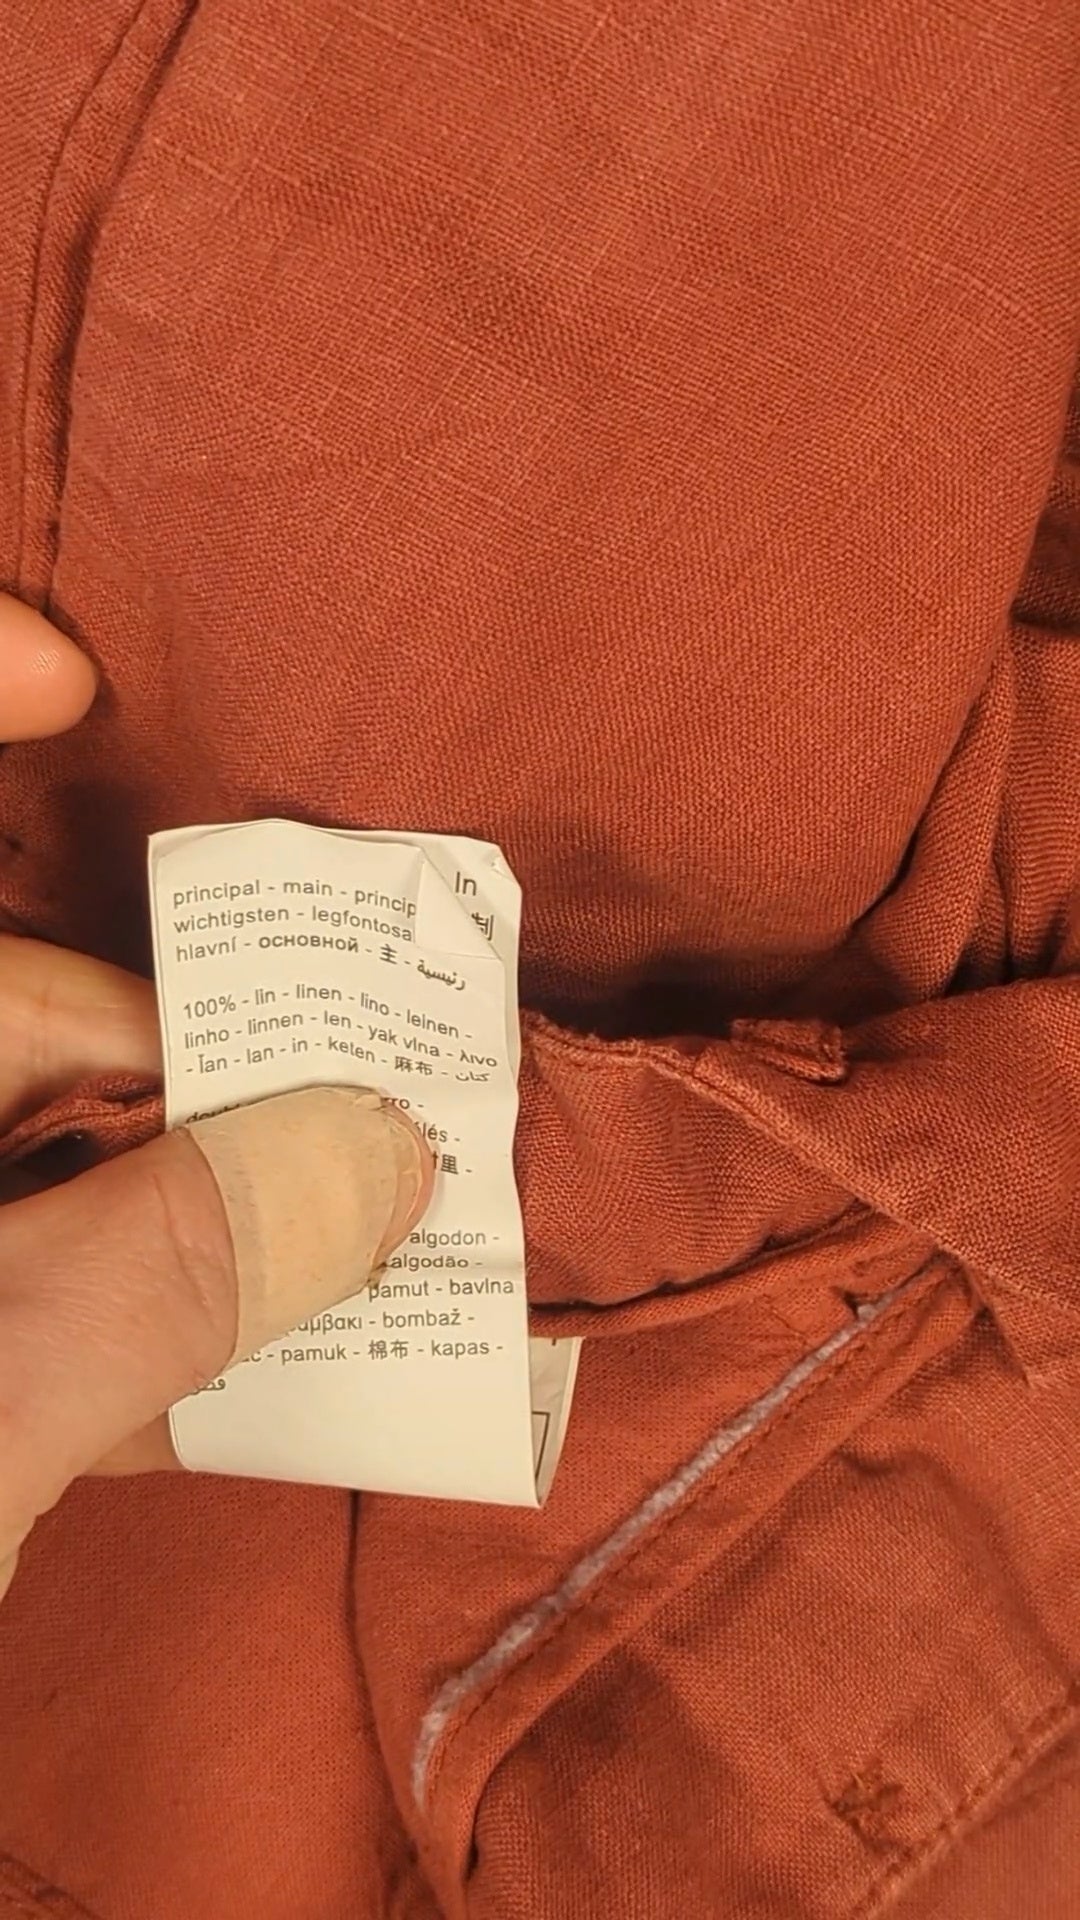 principal - main - princip
In
wichtigsten - legfontosa
制
hlavní - основной - 主 - رئيسية
100% - lin - linen - lino - leinen -
linho - linnen - len - yak vlna - λινο
- Īan - lan - in - keten - 麻布 - كتان
rro -
lés -
里 -
algodon -
algodão -
pamut - bavlna
μβακι - bombaž -
- pamuk - 棉布 - kapas -